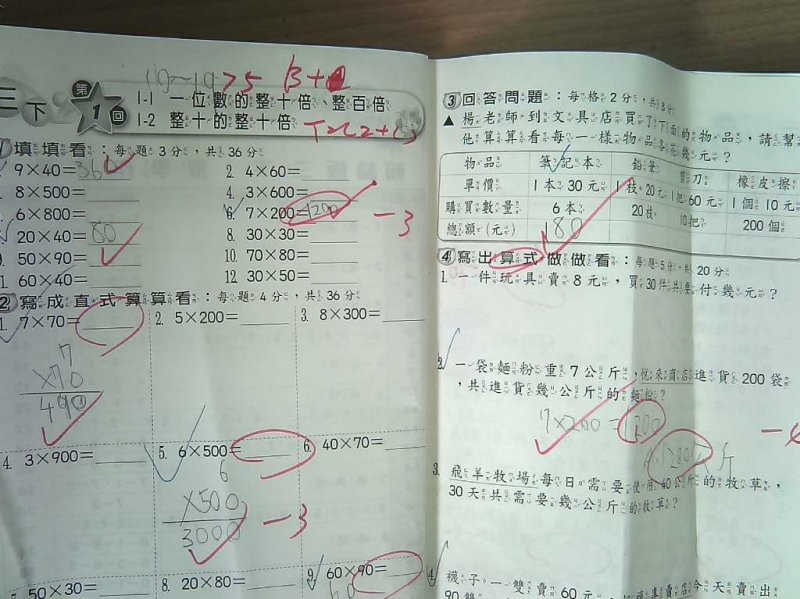 三下 第1回
1-1 一位數的整十倍、整百倍
1-2 整十的整十倍
填填看：每題3分，共36分
9×40=360
2. 4×60=
8×500=
4. 3×600=
6×800=
6. 7×200=1200
-3
20×40=80
8. 30×30=
50×90=
10. 70×80=
60×40=
12. 30×50=
②寫成直式算算看：每題4分，共36分
1. 7×70=
7
×70
490
2. 5×200=
3. 8×300=
4. 3×900=
5. 6×500=
6
×500
3000
-3
6. 40×70=
50×30=
8. 20×80=
9. 60×90=
③回答問題：每格2分，共8分
▲楊老師到文具店買了下面的物品，請幫
他算算看每一樣物品各花幾元？
物品 筆記本 鉛筆 剪刀 橡皮擦
單價 1本30元 1枝20元 1把60元 1個10元
購買數量 6本 20枝 10把 200個
總額(元) 180
④寫出算式做做看：每題5分，共20分
1. 一件玩具賣8元，買30件共要付幾元？
2. 一袋麵粉重7公斤，悅來商店進貨200袋
，共進貨幾公斤的麵粉？
7×200=1200
A:1200公斤
3. 飛羊牧場每日需要使用40公斤的牧草，
30天共需要幾公斤的牧草？
4. 襪子一雙賣60元